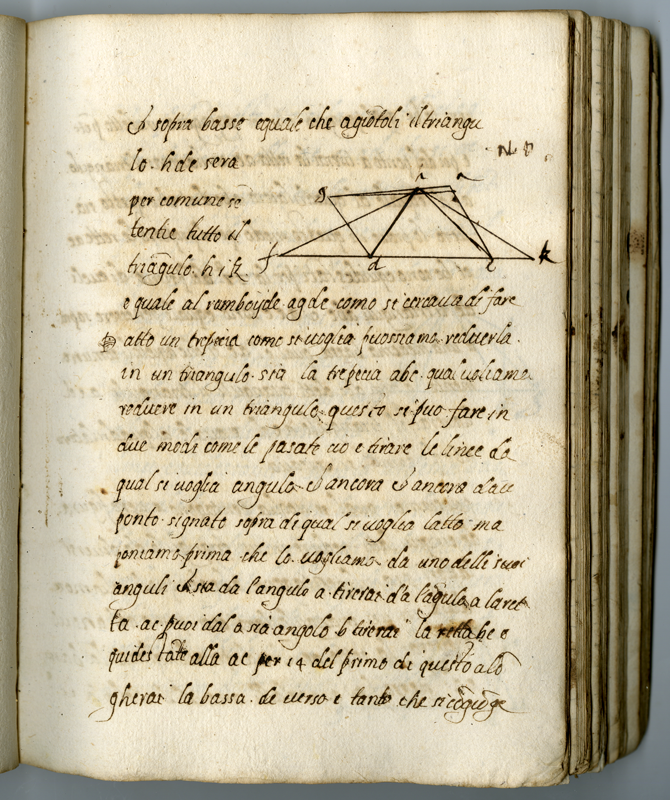 sopra basse equale che agiōtoli il triangu
lo. h de sera
N. 8.
per comune sē
tentie tutto il
triāgulo. h i k.
g h a
f d e k
e quale al romboyde. agde como si cercaua di fare
atto un trepecia come si uoglia possiamo redurerla.
in un triangulo. sia la trepecia abc. qual uoliamo
redurre in un triangulo. questo si puo fare in
due modi come le pasate cio e tirare le linee da
qual si uoglia angulo. ancora dau
ponto. signato sopra di qual se uoglia latto. ma
poniamo prima che lo. uogliamo. da uno delli suoi
anguli sia da l'angulo a. tirerai da l'āgulo a la ret
ta. ac. puoi dal a sia angolo b tirerai la retta be e
quidestate alla ac per 14 del primo di questo alō
gherai la bassa. de verso e tanto che si cōgiōge